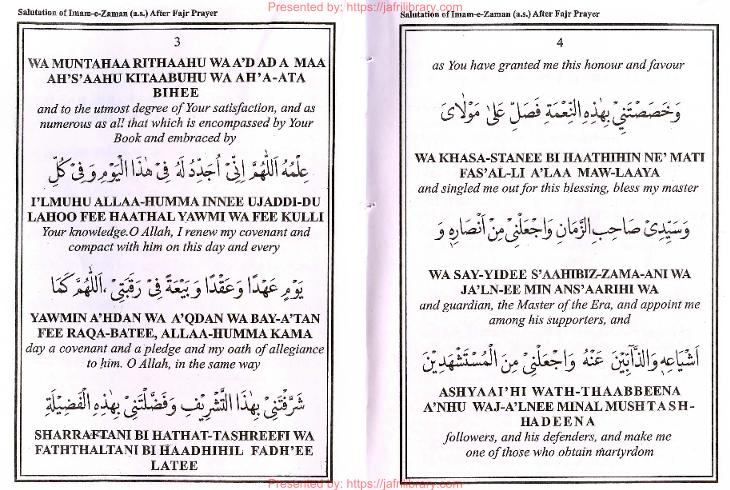 Presented by: https://jafrilibrary.com
Salutation of Imam-e-Zaman (a.s.) After Fajr Prayer
3
WA MUNTAHAA RITHAAHU WA A'D AD A MAA
AH'S'AAHU KITAABUHU WA AH'A-ATA
BIHEE
and to the utmost degree of Your satisfaction, and as
numerous as all that which is encompassed by Your
Book and embraced by
عِلْمُهُ اَللّٰهُمَّ اِنِّىْ اُجَدِّدُ لَهُ فِىْ هٰذَا الْيَوْمِ وَ فِىْ كُلِّ
I'LMUHU ALLAA-HUMMA INNEE UJADDI-DU
LAHOO FEE HAATHAL YAWMI WA FEE KULLI
Your knowledge.O Allah, I renew my covenant and
compact with him on this day and every
يَوْمٍ عَهْدًا وَ عَقْدًا وَ بَيْعَةً فِىْ رَقَبَتِىْ ،اَللّٰهُمَّ كَمَا
YAWMIN A'HDAN WA A'QDAN WA BAY-A'TAN
FEE RAQA-BATEE, ALLAA-HUMMA KAMA
day a covenant and a pledge and my oath of allegiance
to him. O Allah, in the same way
شَرَّفْتَنِىْ بِهٰذَا التَّشْرِيْفِ وَفَضَّلْتَنِىْ بِهٰذِهِ الْفَضِيْلَةِ
SHARRAFTANI BI HATHAT-TASHREEFI WA
FATHTHALTANI BI HAADHIHIL FADH'EE
LATEE
Salutation of Imam-e-Zaman (a.s.) After Fajr Prayer
4
as You have granted me this honour and favour
وَ خَصَصْتَنِىْ بِهٰذِهِ النِّعْمَةِ فَصَلِّ عَلىٰ مَوْلَاىَ
WA KHASA-STANEE BI HAATHIHIN NE' MATI
FAS'AL-LI A'LAA MAW-LAAYA
and singled me out for this blessing, bless my master
وَ سَيِّدِىْ صَاحِبِ الزَّمَانِ وَاجْعَلْنِىْ مِنْ اَنْصَارِهِ وَ
WA SAY-YIDEE S'AAHIBIZ-ZAMA-ANI WA
JA'LN-EE MIN ANS'AARIHI WA
and guardian, the Master of the Era, and appoint me
among his supporters, and
اَشْيَاعِهِ وَالذَّآبِّيْنَ عَنْهُ وَاجْعَلْنِىْ مِنَ الْمُسْتَشْهَدِيْنَ
ASHYAAI'HI WATH-THAABBEENA
A'NHU WAJ-A'LNEE MINAL MUSH T A S H -
HADEENA
followers, and his defenders, and make me
one of those who obtain martyrdom
Presented by: https://jafrilibrary.com